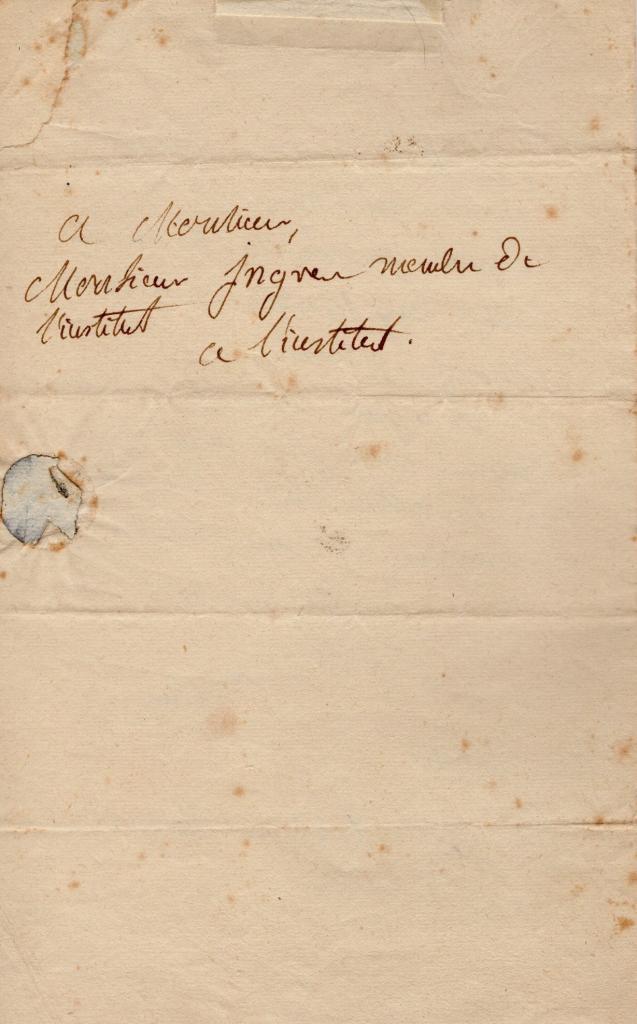 A Monsieur,
Monsieur Ingres membre de
l'institut
a l'institut.